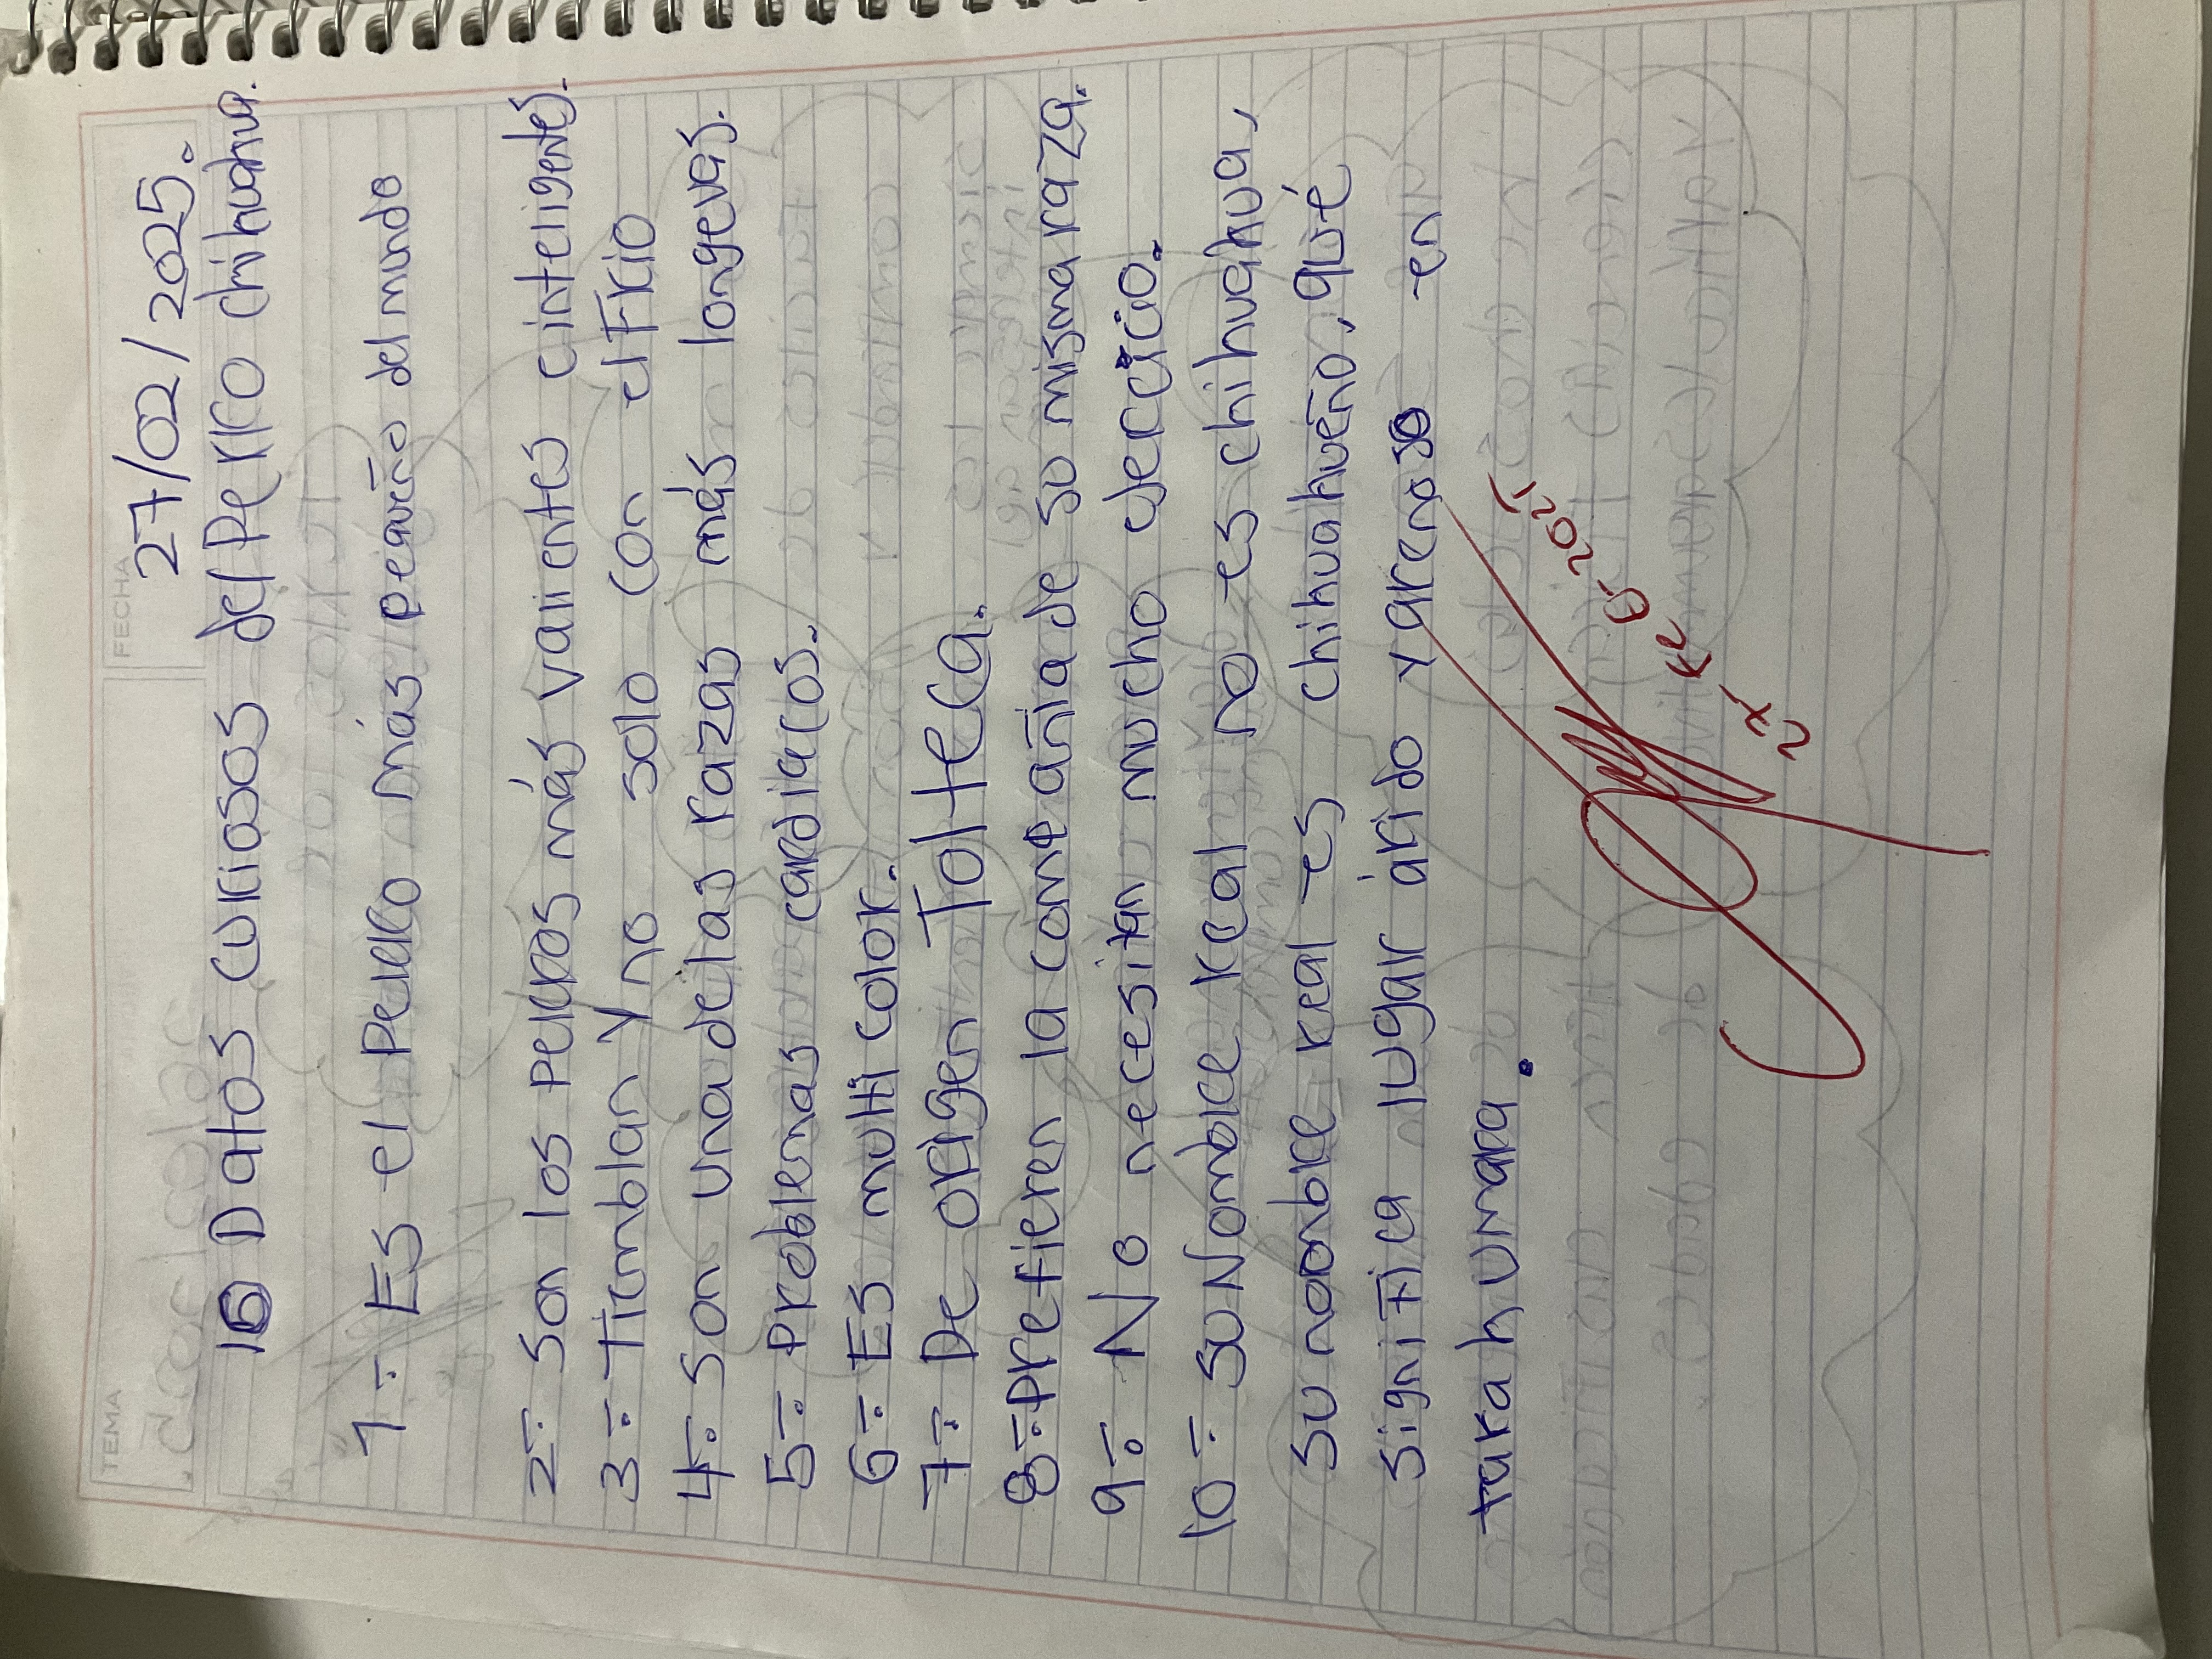 FECHA
27/02/2025.
TEMA
10 Datos curiosos del Perro chihuahua.
1-. Es el Perro más pequeño del mundo
2-. Son los perros más valientes e inteligentes.
3-. Tiemblan y no solo con el Frio
4-. Son una de las razas más longevas.
5-. Problemas cardiacos.
6-. Es multi color.
7-. De origen Tolteca.
8-. Prefieren la compañia de su misma raza.
9-. No necesitan mucho
10-. Su Nombre real no es chihuahua,
su nombre real es chihuahueño, qué
significa lugar árido y arenoso en
tarahumara.